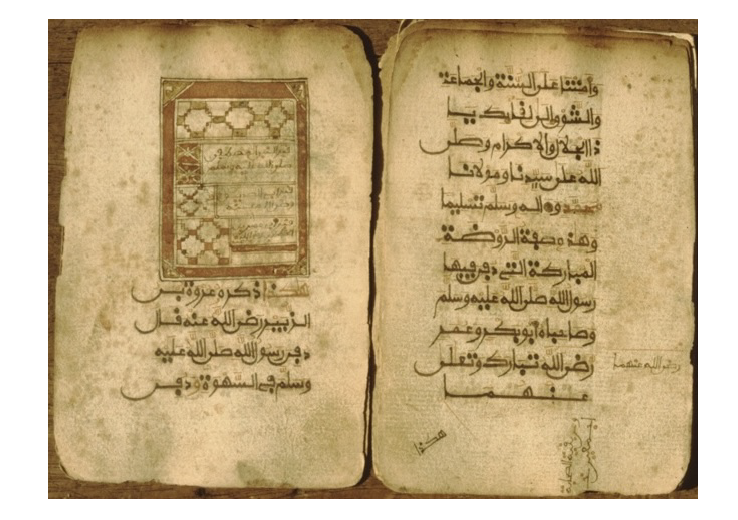 وأمتنا على السنة والجماعة
والشوق إلى لقائك يا
ذا الجلال والاكرام وصلى
الله على سيدنا ومولانا
محمد وءاله وسلم تسليما
وهذه صفة الروضة
المباركة التي دفن فيها
رسول الله صلى الله عليه وسلم
وصاحباه أبو بكر وعمر
رضي الله تبارك وتعلى
عنهما
رضي الله عنهما
هكذا
صلى الله عليه وسلم
هكذا ذكره عروة بن
الزبير رضي الله عنه قال
دفن رسول الله صلى الله عليه
وسلم في السهوة ودفن